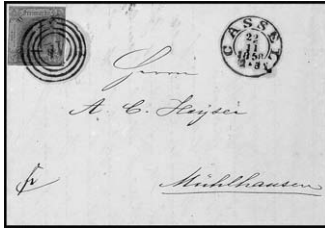 CASSEL
22
11
Herrn
A. C. Heyser
fr
Mühlhausen